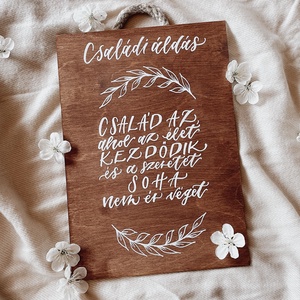 Családi áldás
CSALÁD AZ,
ahol az élet
KEZDŐDIK
és a szeretet
SOHA
nem ér véget